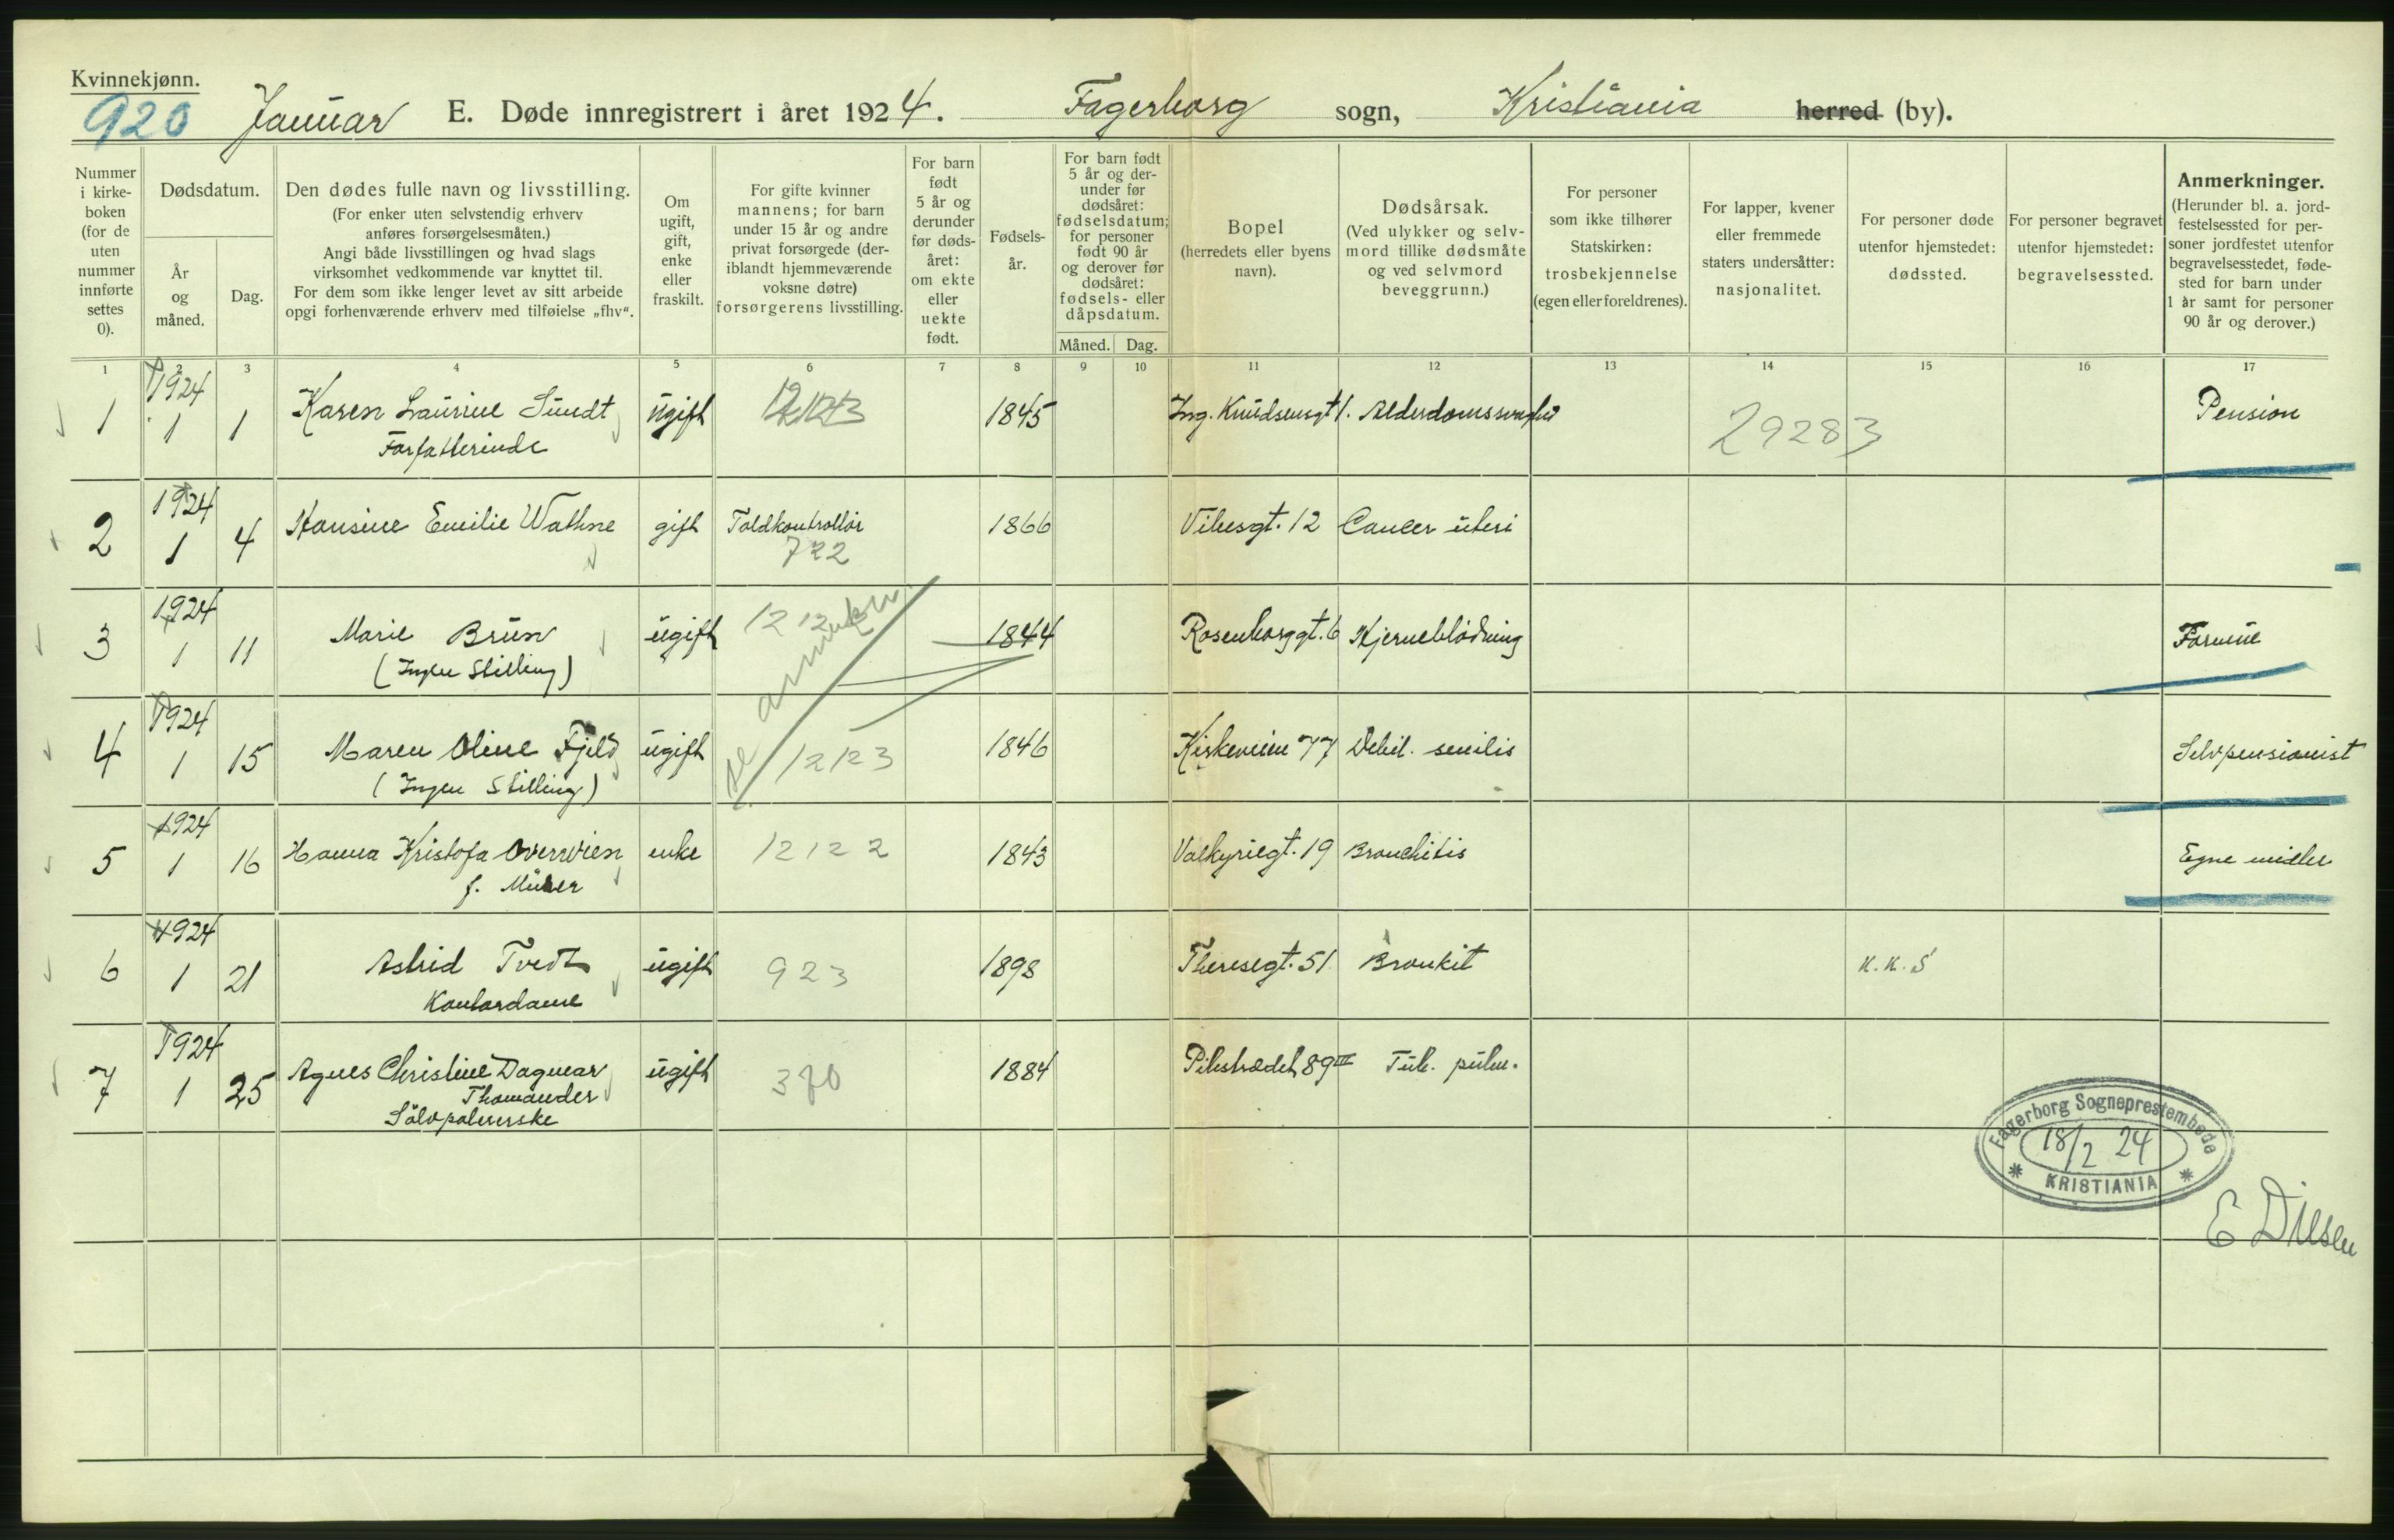 Kvinnekjønn.
920 Januar E. Døde innregistrert i året 1924. Fagerborg sogn, Kristiania herred (by).
Nummer i kirke-boken (for de uten nummer innførte settes 0).
Dødsdatum.
År og måned.
Dag.
Den dødes fulle navn og livsstilling.
(For enker uten selvstendig erhverv
anføres forsørgelsesmåten.)
Angi både livsstillingen og hvad slags
virksomhet vedkommende var knyttet til.
For dem som ikke lenger levet av sitt arbeide
opgi forhenværende erhverv med tilføielse „fhv“.
Om ugift, gift, enke eller fraskilt.
For gifte kvinner
mannens; for barn
under 15 år og andre
privat forsørgede (der-
iblandt hjemmeværende
voksne døtre)
forsørgerens livsstilling.
For barn født 5 år og derunder før døds-året: om ekte eller uekte født.
Fødsels-år.
For barn født
5 år og der-
under før
dødsåret:
fødselsdatum;
for personer
født 90 år
og derover før
dødsåret:
fødsels- eller
dåpsdatum.
Måned. Dag.
Bopel
(herredets eller byens
navn).
Dødsårsak.
(Ved ulykker og selv-
mord tillike dødsmåte
og ved selvmord
beveggrunn.)
For personer
som ikke tilhører
Statskirken:
trosbekjennelse
(egen eller foreldrenes).
For lapper, kvener
eller fremmede
staters undersåtter:
nasjonalitet.
For personer døde
utenfor hjemstedet:
dødssted.
For personer begravet
utenfor hjemstedet:
begravelsessted.
Anmerkninger.
(Herunder bl. a. jord-
festelsessted for per-
soner jordfestet utenfor
begravelsesstedet, føde-
sted for barn under
1 år samt for personer
90 år og derover.)
1 2 3 4 5 6 7 8 9 10 11 12 13 14 15 16 17
1 1924 1 1 Karen Laurine Sundt ugift 1845 Ing. Knudsensgt 1. Alderdomssvaghet 29283 Pension
Forfatterinde
2 1924 1 4 Hansine Emilie Wathne gift Toldkontrollør 1866 Vibesgt. 12 Cancer uteri
722
3 1924 1 11 Marie Brun ugift 1212 1844 Rosenborggt. 6 Hjerneblødning Formue
(Ingen Stilling)
4 1924 1 15 Maren Oline Fjeld ugift 12123 1846 Kirkeveien 77 Debil. senilis Selvpensionist
(Ingen Stilling)
5 1924 1 16 Hanna Kristofa Overwien enke 12122 1843 Valkyriegt. 19 Bronchitis Egne midler
f. Müller
6 1924 1 21 Astrid Tvedt ugift 923 1898 Theresegt. 51 Bronkit K. K. S
Kontordame
7 1924 1 25 Agnes Christine Dagmar ugift 370 1884 Pilestrædet 89 III Tub. pulm.
Thomander
Sølvpolererske
Fagerborg Sogneprestembede
18/2 24
KRISTIANIA
E Diesen